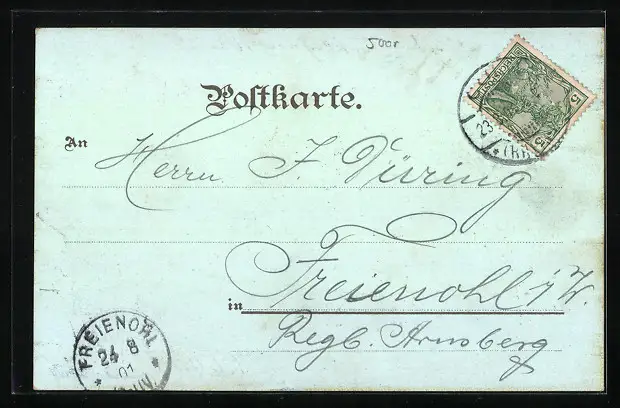 500r
Postkarte.
An
Herrn J. Düring
in Freienohl i/W.
Regb. Arnsberg
FREIENOHL
24 8
01
23
5 5